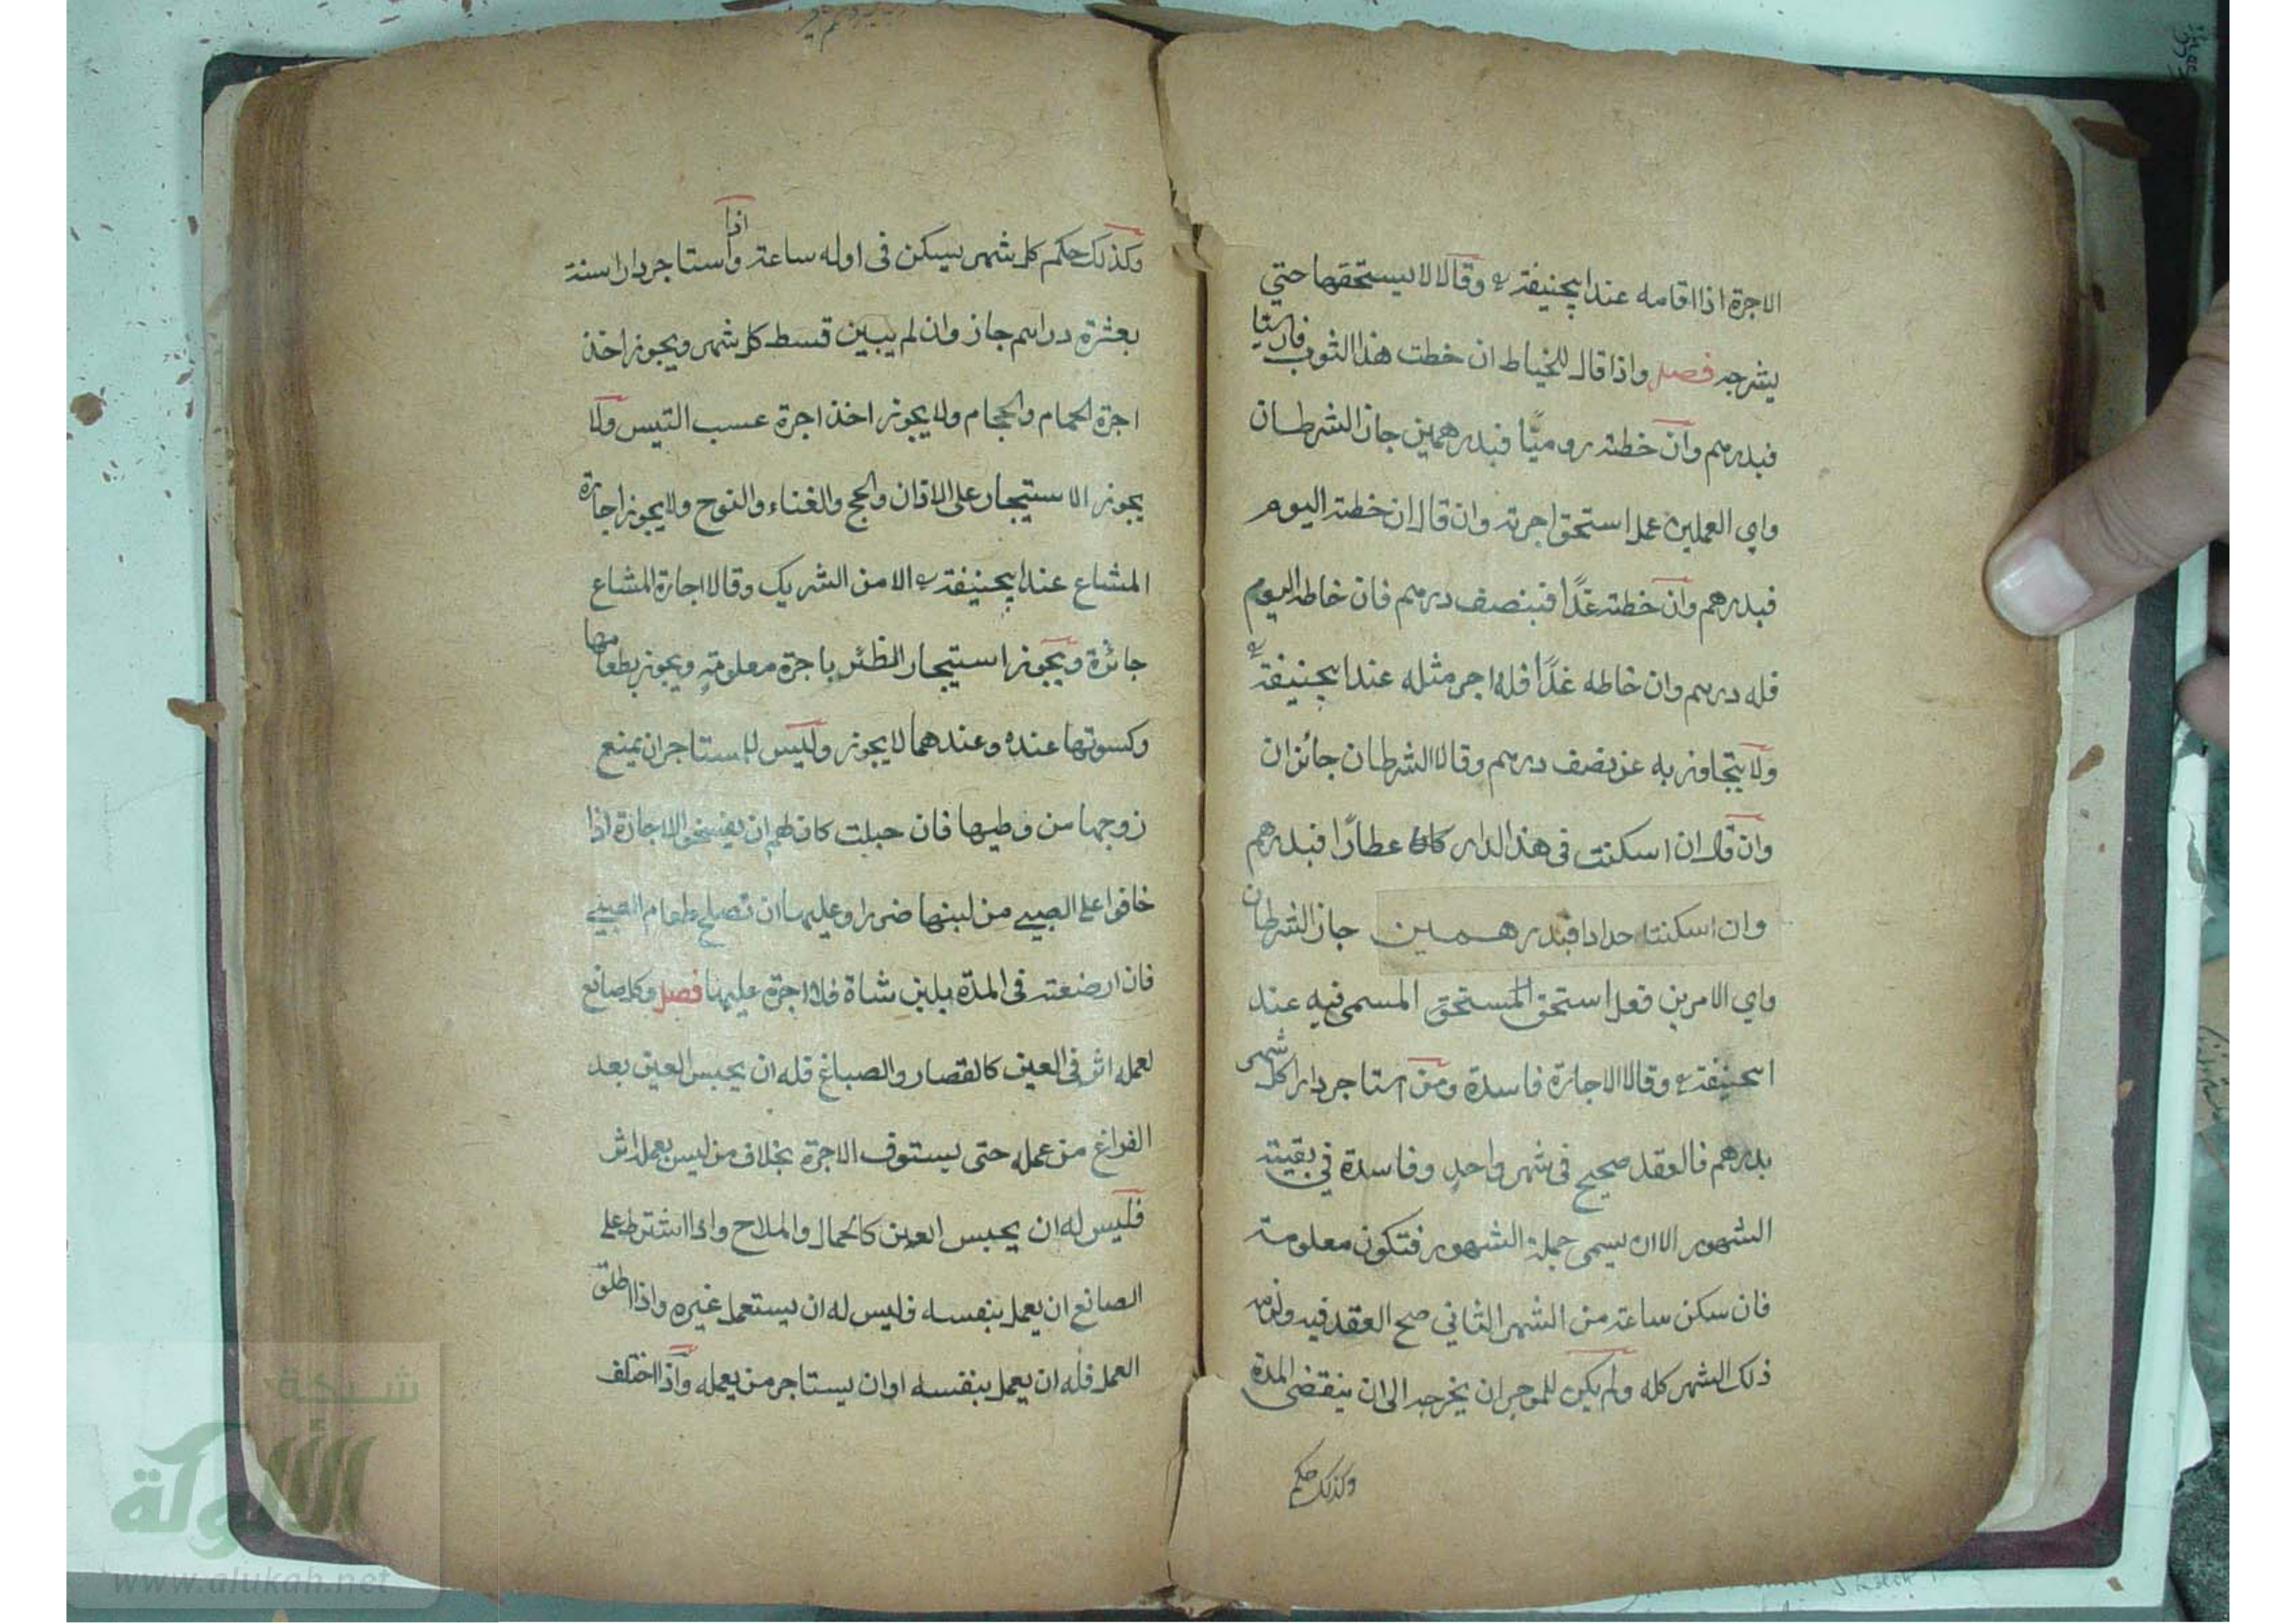 الاجرة اذا اقامه عند ابيحنيفة رح وقالا لا يستحقها حتي
يشرجه فصل واذا قال للخياط ان خطت هذا الثوب فارسيا
فبدرهم وان خطته روميًّا فبدرهمين جاز الشرطان
واي العملين عمل استحق اجرته وان قال ان خطته اليوم
فبدرهم وان خطته غدًا فبنصف درهم فان خاطه اليوم
فله درهم وان خاطه غدًا فله اجر مثله عند ابيحنيفة رح
ولا يتجاوز به عن نصف درهم وقالا الشرطان جائزان
وان قال ان اسكنت في هذا الدار عطارًا فبدرهم
وان اسكنته حدادا فبدرهمين جاز الشرطان
واي الامرين فعل استحق المستحق المسمى فيه عند
ابيحنيفة رح وقالا الاجارة فاسدة ومن استاجر دارا كل شهر
بدرهم فالعقد صحيح في شهر واحد وفاسدة في بقيته
الشهور الا ان يسمى جملة الشهور فتكون معلومة
فان سكن ساعة من الشهر الثاني صح العقد فيه ولزمه
ذلك الشهر كله ولم يكن للموجر ان يخرجه الى ان ينقضي المدة
وكذلك حكم
وكذلك حكم كل شهر يسكن في اوله ساعة واذا استاجر دارا سنة
بعشرة دراهم جاز وان لم يبين قسط كل شهر ويجوز اخذ
اجرة الحمام والحجام ولا يجوز اخذ اجرة عسب التيس ولا
يجوز الاستيجار على الاذان والحج والغناء والنوح ولا يجوز اجارة
المشاع عند ابيحنيفة رح الا من الشريك وقالا اجارة المشاع
جائزة ويجوز استيجار الظئر باجرة معلومة ويجوز بطعامها
وكسوتها عنده وعندهما لا يجوز وليس للمستاجر ان يمنع
زوجها من وطيها فان حبلت كان لهم ان يفسخوا الاجارة اذا
خافوا على الصبي من لبنها ضررا وعليها ان تصلح طعام الصبي
فان ارضعته في المدة بلبن شاة فلا اجرة عليها فصل وكل صانع
لعمله اثر في العين كالقصار والصباغ فله ان يحبس العين بعد
الفراغ من عمله حتى يستوف الاجرة بخلاف من ليس بعمله اثر
فليس له ان يحبس العين كالحمال والملاح واذا اشترط على
الصانع ان يعمل بنفسه فليس له ان يستعمل غيره واذا اطلق
العمل فله ان يعمل بنفسه او ان يستاجر من يعمله واذا اختلف
شبكة
الألوكة
www.alukah.net